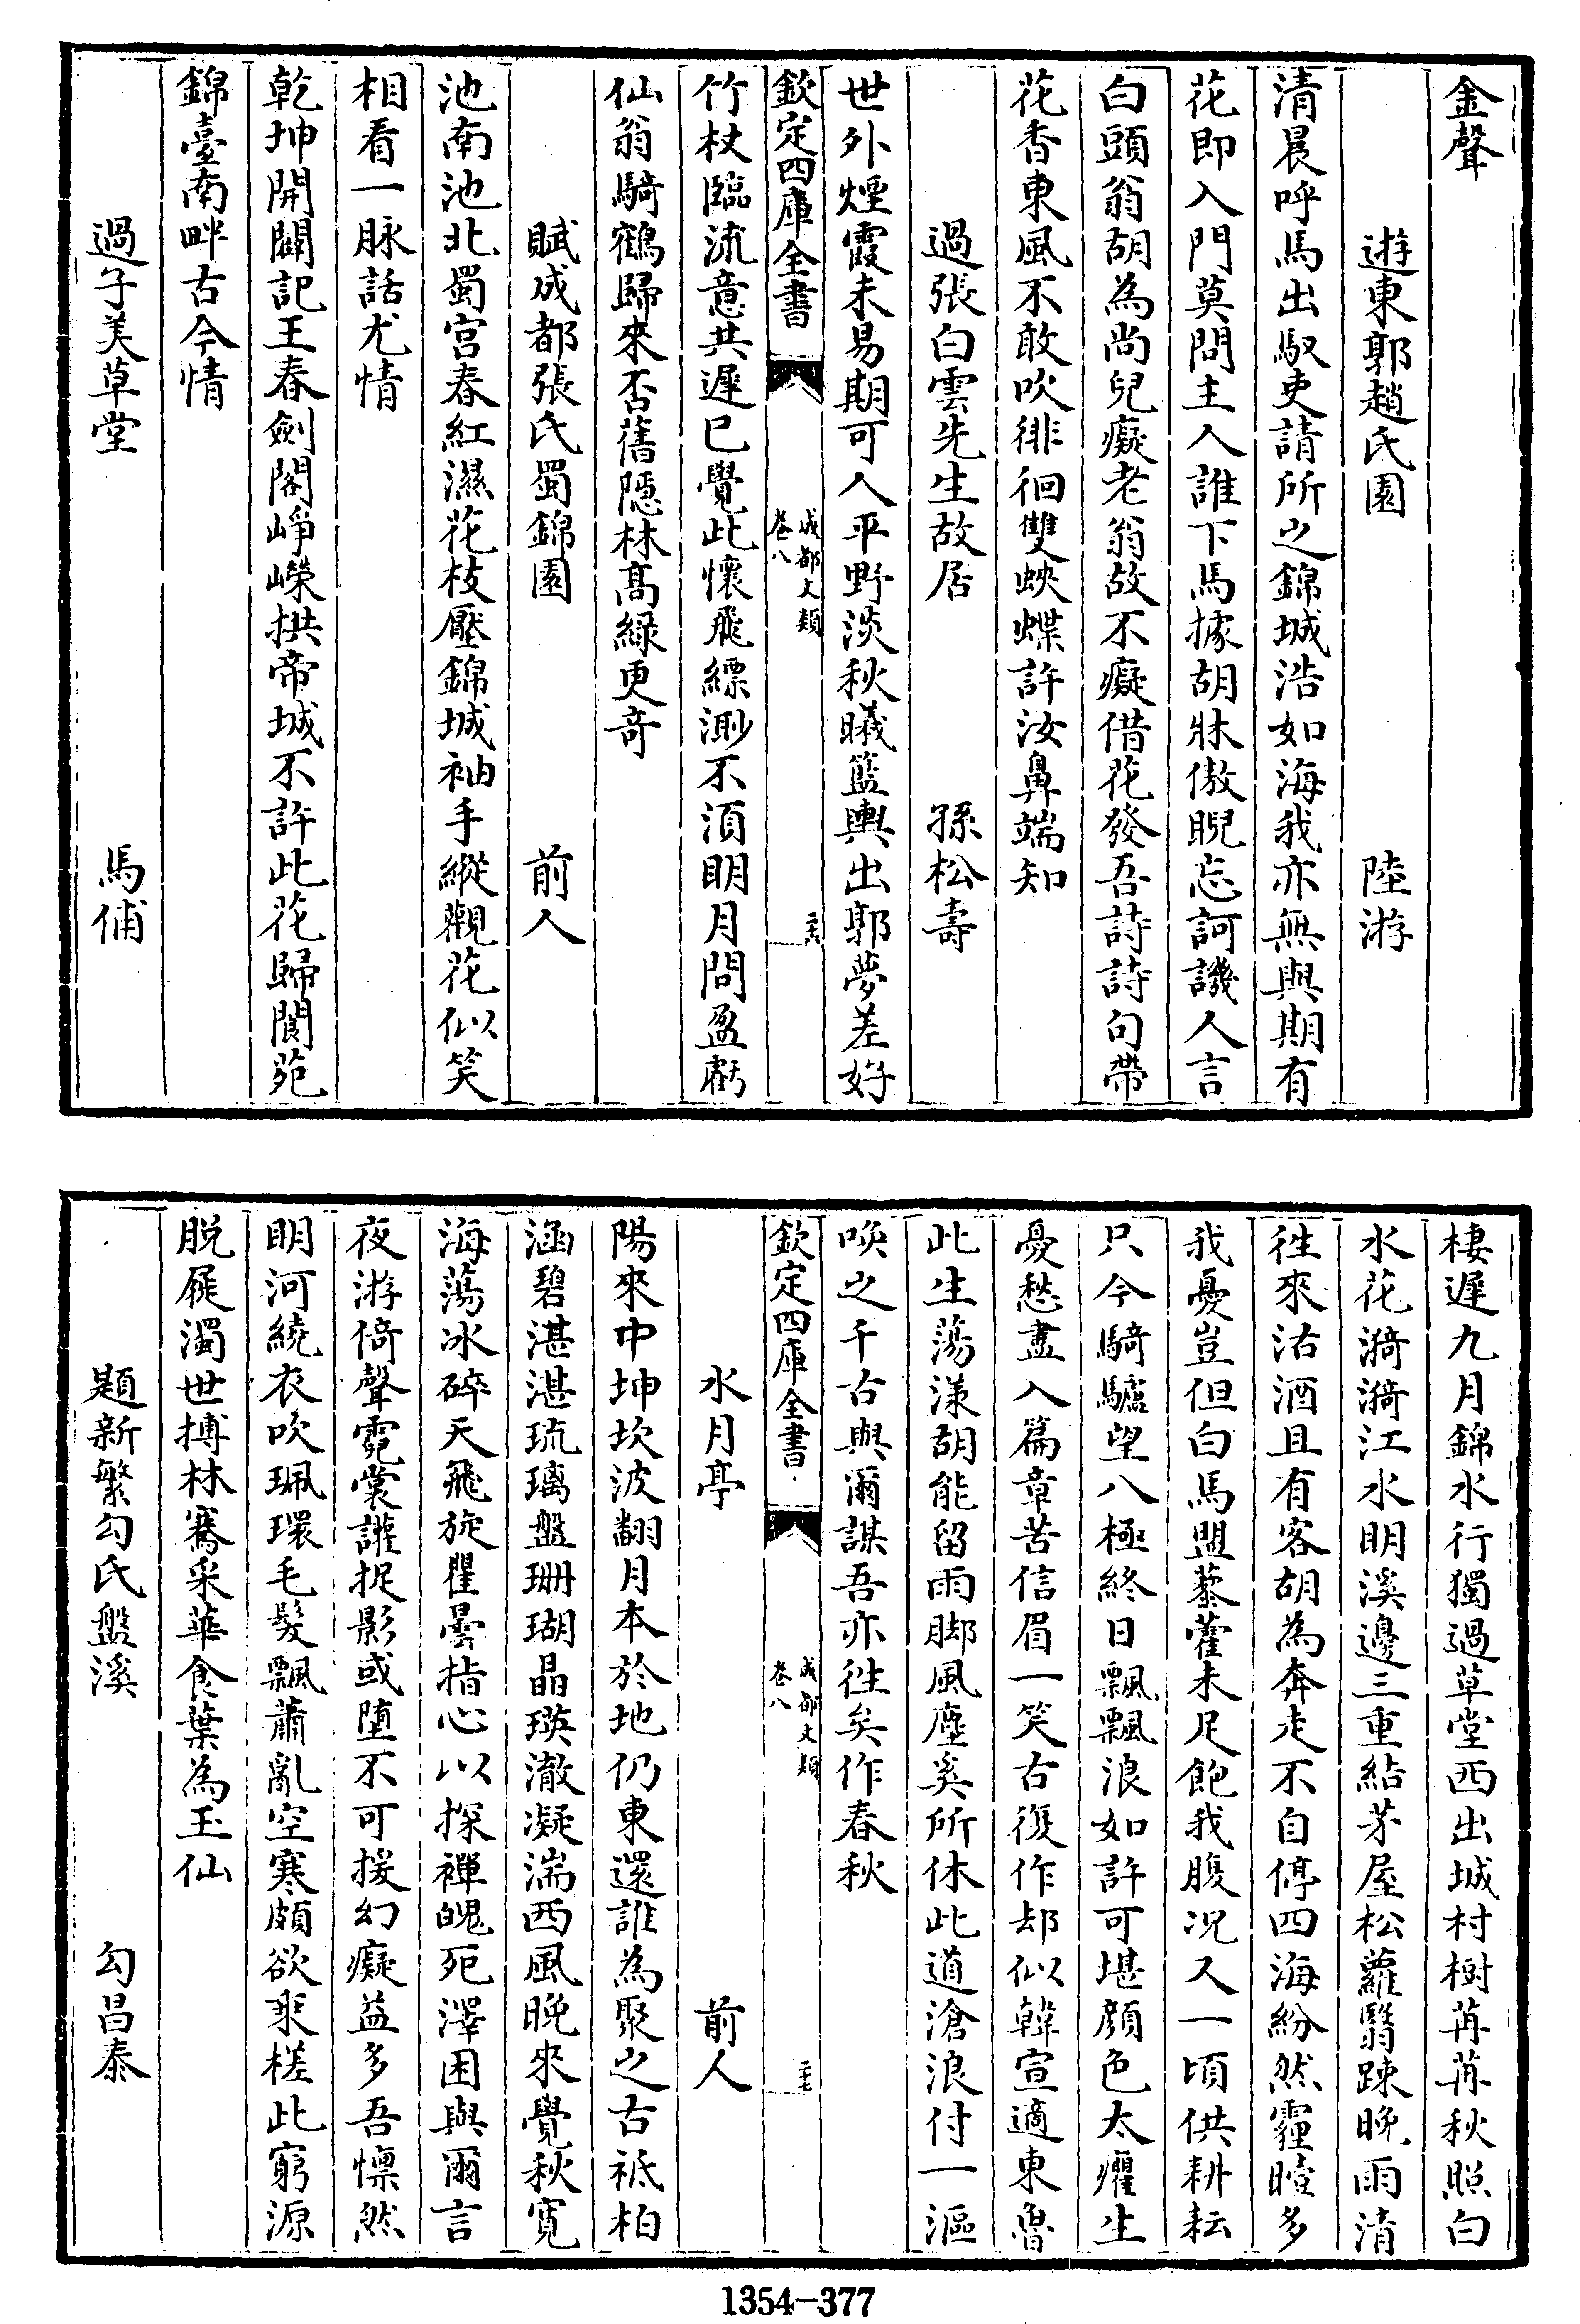 金聲
遊東郭趙氏園 陸游
清晨呼馬出馭吏請所之錦城浩如海我亦無與期有
花即入門莫問主人誰下馬據胡牀傲睨忘訶譏人言
白頭翁胡為尚兒癡老翁故不癡借花發吾詩詩句帶
花香東風不敢吹徘徊雙蛺蝶許汝鼻端知
過張白雲先生故居 孫松壽
世外煙霞未易期可人平野淡秋曦籃輿出郭夢差好
欽定四庫全書 成都文類 卷八 二十六
竹杖臨流意共遲已覺此懷飛縹渺不須明月問盈虧
仙翁騎鶴歸來否舊隱林高綠更奇
賦成都張氏蜀錦園 前人
池南池北蜀宮春紅濕花枝壓錦城袖手縱觀花似笑
相看一脉話尤情
乾坤開闢記王春劍閣崢嶸拱帝城不許此花歸閬苑
錦臺南畔古今情
過子美草堂 馬俌
棲遲九月錦水行獨過草堂西出城村樹苒苒秋照白
水花漪漪江水明溪邊三重結茅屋松蘿翳踈晚雨清
徃來沽酒且有客胡為奔走不自停四海紛然霾曀多
我憂豈但白馬盟藜藿未足飽我腹况又一頃供耕耘
只今騎驢望八極終日飄飄浪如許可堪顔色太癯生
憂愁盡入篇章苦信眉一笑古復作却似韓宣適東魯
此生蕩漾胡能留雨脚風塵奚所休此道滄浪付一漚
喚之千古與爾謀吾亦徃矣作春秋
欽定四庫全書 成都文類 卷八 二十七
水月亭 前人
陽來中坤坎波翻月本於地仍東還誰為聚之古祗柏
涵碧湛湛琉璃盤珊瑚晶瑛澈凝湍西風晚來覺秋寛
海蕩冰碎天飛旋瞿曇指心以探禪魄死澤困與爾言
夜游倚聲霓裳讙捉影或墮不可援幻癡益多吾懍然
明河繞衣吹珮環毛髮飄蕭亂空寒頗欲乘槎此窮源
脱屣濁世摶林騫采華食葉為玉仙
題新繁勾氏盤溪 勾昌泰
1354—377